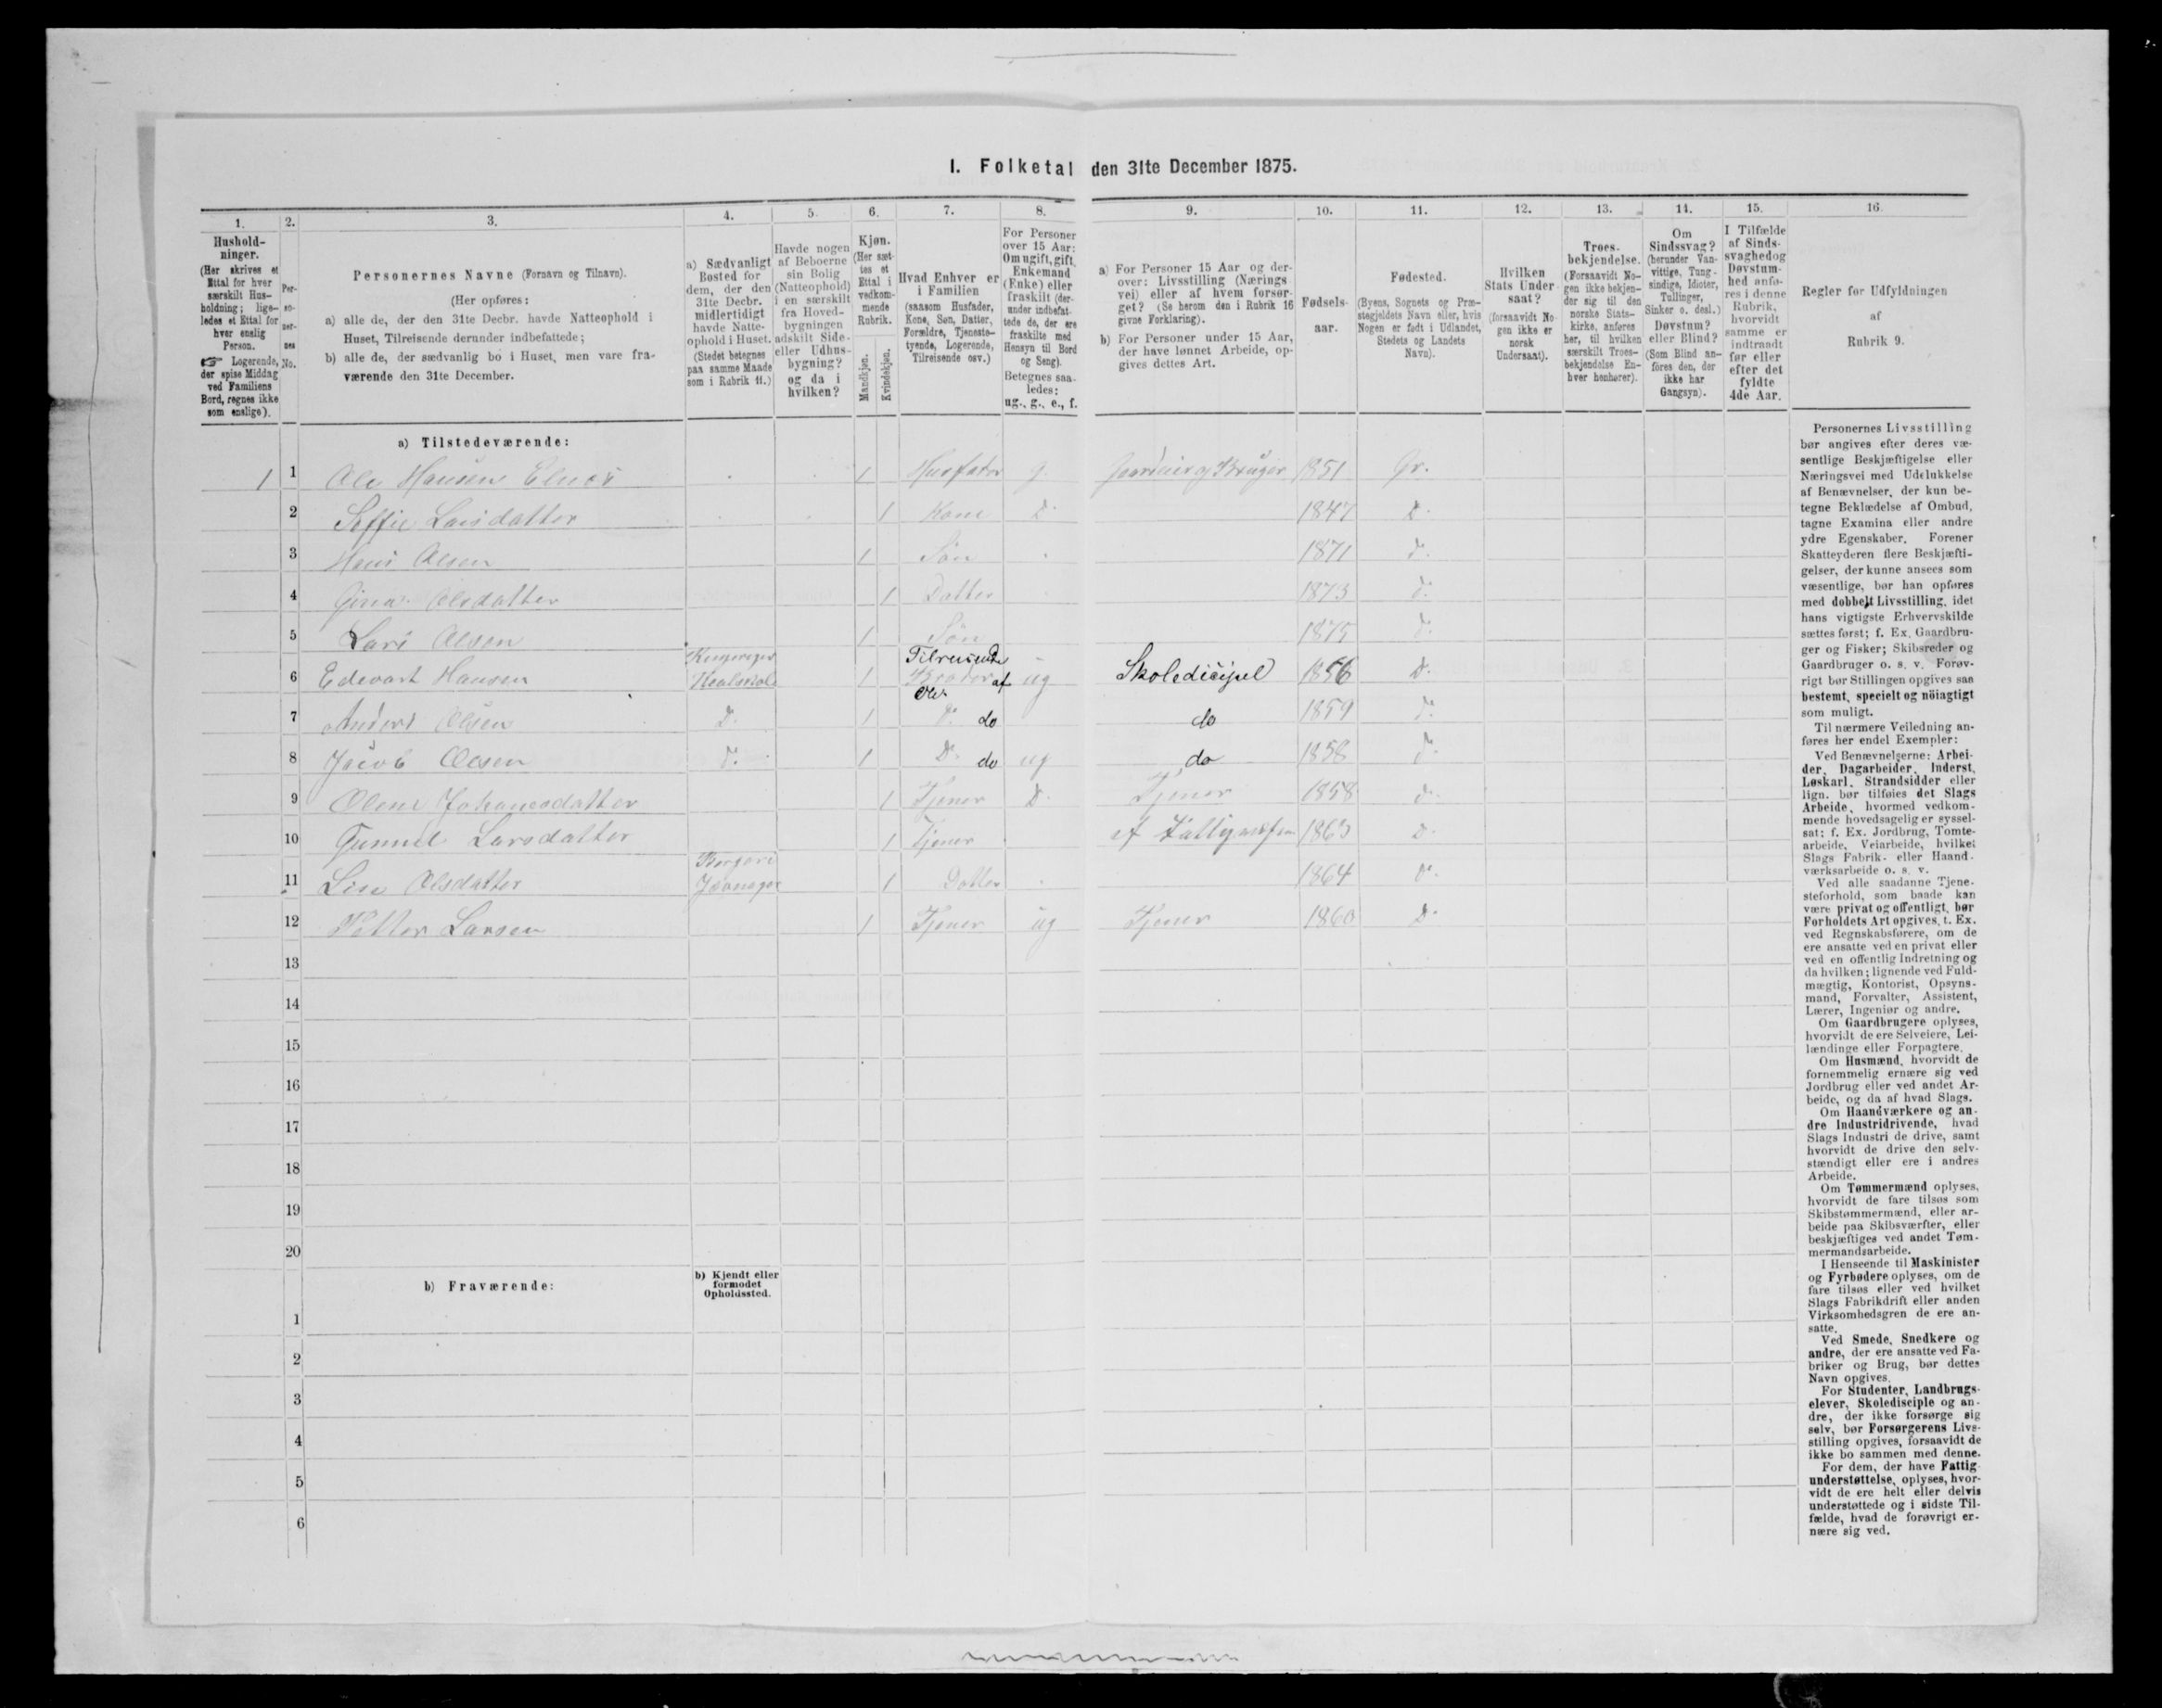 1. Folketal den 31te December 1875.
1.
Hushold-
ninger.
(Her skrives et
Ettal for hver
særskilt Hus-
holdning; lige-
ledes et Ettal for
hver enslig
Person.
☞ Logerende,
der spise Middag
ved Familiens
Bord, regnes ikke
som enslige).
2.
Per-
so-
ner-
nes
No.
3.
Personernes Navne (Fornavn og Tilnavn).
(Her opføres:
a) alle de, der den 31te Decbr. havde Natteophold i
Huset, Tilreisende derunder indbefattede;
b) alle de, der sædvanlig bo i Huset, men vare fra-
værende den 31te December.
4.
a) Sædvanligt
Bosted for
dem, der den
31te Decbr.
midlertidigt
havde Natte-
ophold i Huset.
(Stedet betegnes
paa samme Maade
som i Rubrik 11.)
5.
Havde nogen
af Beboerne
sin Bolig
(Natteophold)
i en særskilt
fra Hoved-
bygningen
adskilt Side-
eller Udhus-
bygning?
og da i
hvilken?
6.
Kjøn.
(Her sæt-
tes et
Ettal i
vedkom-
mende
Rubrik.
Mandkjøn.
Kvindekjøn.
7.
Hvad Enhver er
i Familien
(saasom Husfader,
Kone, Søn, Datter,
Forældre, Tjeneste-
tyende, Logerende,
Tilreisende osv.)
8.
For Personer
over 15 Aar:
Om ugift, gift,
Enkemand
(Enke) eller
fraskilt (der-
under indbefat-
tede de, der ere
fraskilte med
Hensyn til Bord
og Seng).
Betegnes saa-
ledes:
ug., g., e., f.
9.
a) For Personer 15 Aar og der-
over: Livsstilling (Nærings-
vei) eller af hvem forsør-
get? (Se herom den i Rubrik 16
givne Forklaring).
b) For Personer under 15 Aar,
der have lønnet Arbeide, op-
gives dettes Art.
10.
Fødsels-
aar.
11.
Fødested.
(Byens, Sognets og Præ-
stegjeldets Navn eller, hvis
Nogen er født i Udlandet,
Stedets og Landets
Navn).
12.
Hvilken
Stats Under
saat?
(forsaavidt No-
gen ikke er
norsk
Undersaat).
13.
Troes-
bekjendelse.
(Forsaavidt No-
gen ikke bekjen-
der sig til den
norske Stats-
kirke, anføres
her, til hvilken
særskilt Troes-
bekjendelse En-
hver henhører).
14.
Om
Sindssvag?
(herunder Van-
vittige, Tung-
sindige, Idioter,
Tullinger,
Sinker o. desl.)
Døvstum?
eller Blind?
(Som Blind an-
føres den, der
ikke har
Gangsyn).
15.
I Tilfælde
af Sinds-
svaghed og
Døvstum-
hed anfø-
res i denne
Rubrik,
hvorvidt
samme er
indtraadt
før eller
efter det
fyldte
4de Aar.
16.
Regler for Udfyldningen
af
Rubrik 9.
a) Tilstedeværende:
1 1 Ole Hansen 1 Husfader g. Gaardeier og Bruger 1851 Gr.
2 Larsdatter 1 Kone D. 1847 D.
3 Hans Olsen 1 Søn 1871 d.
4 Olsdatter 1 Datter 1873 d.
5 Lars Olsen 1 Søn 1875 d.
6 Edevart Hansen 1 Tilreisende Broder af Ole ug Skoledisipel 1856 D.
7 Anders Olsen D. 1 D. do do 1859 d.
8 Jacob Olsen d. 1 D. do ug do 1858 d.
9 Oline Johanesdatter 1 Tjener D. Tjener 1858 d.
10 Gunnil Larsdatter 1 Tjener af 1863 D.
11 Lise Olsdatter 1 Datter 1864 D.
12 Petter Larsen 1 Tjener ug Tjener 1860 D.
13
14
15
16
17
18
19
20
b) Fraværende:
b) Kjendt eller
formodet
Opholdssted.
1
2
3
4
5
6
Personernes Livsstilling
bør angives efter deres væ-
sentlige Beskjæftigelse eller
Næringsvei med Udelukkelse
af Benævnelser, der kun be-
tegne Beklædelse af Ombud,
tagne Examina eller andre
ydre Egenskaber. Forener
Skatteyderen flere Beskjæfti-
gelser, der kunne ansees som
væsentlige, bør han opføres
med dobbelt Livsstilling, idet
hans vigtigste Erhvervskilde
sættes først; f. Ex. Gaardbru-
ger og Fisker; Skibsreder og
Gaardbruger o. s. v. Forøv-
rigt bør Stillingen opgives saa
bestemt, specielt og nöiagtigt
som muligt.
Til nærmere Veiledning an-
føres her endel Exempler:
Ved Benævnelserne: Arbei-
der, Dagarbeider, Inderst,
Løskarl, Strandsidder eller
lign. bør tilføies det Slags
Arbeide, hvormed vedkom-
mende hovedsagelig er syssel-
sat; f. Ex. Jordbrug, Tomte-
arbeide, Veiarbeide, hvilket
Slags Fabrik- eller Haand-
værksarbeide o. s. v.
Ved alle saadanne Tjene-
steforhold, som baade kan
være privat og offentligt, bør
Forholdets Art opgives, t. Ex.
ved Regnskabsførere, om de
ere ansatte ved en privat eller
ved en offentlig Indretning og
da hvilken; lignende ved Fuld-
mægtig, Kontorist, Opsyns-
mand, Forvalter, Assistent,
Lærer, Ingeniør og andre.
Om Gaardbrugere oplyses,
hvorvidt de ere Selveiere, Lei-
lændinge eller Forpagtere.
Om Husmænd, hvorvidt de
fornemmelig ernære sig ved
Jordbrug eller ved andet Ar-
beide, og da af hvad Slags.
Om Haandværkere og an-
dre Industridrivende, hvad
Slags Industri de drive, samt
hvorvidt de drive den selv-
stændigt eller ere i andres
Arbeide.
Om Tømmermænd oplyses,
hvorvidt de fare tilsøs som
Skibstømmermænd, eller ar-
beide paa Skibsværfter, eller
beskjæftiges ved andet Tøm-
mermandsarbeide.
I Henseende til Maskinister
og Fyrbødere oplyses, om de
fare tilsøs eller ved hvilket
Slags Fabrikdrift eller anden
Virksomhedsgren de ere an-
satte.
Ved Smede, Snedkere og
andre, der ere ansatte ved Fa-
briker og Brug, bør dettes
Navn opgives.
For Studenter, Landbrugs-
elever, Skoledisciple og an-
dre, der ikke forsørge sig
selv, bør Forsørgerens Livs-
stilling opgives, forsaavidt de
ikke bo sammen med denne.
For dem, der have Fattig
understøttelse, oplyses, hvor-
vidt de ere helt eller delvis
understøttede og i sidste Til-
fælde, hvad de forøvrigt er-
nære sig ved.